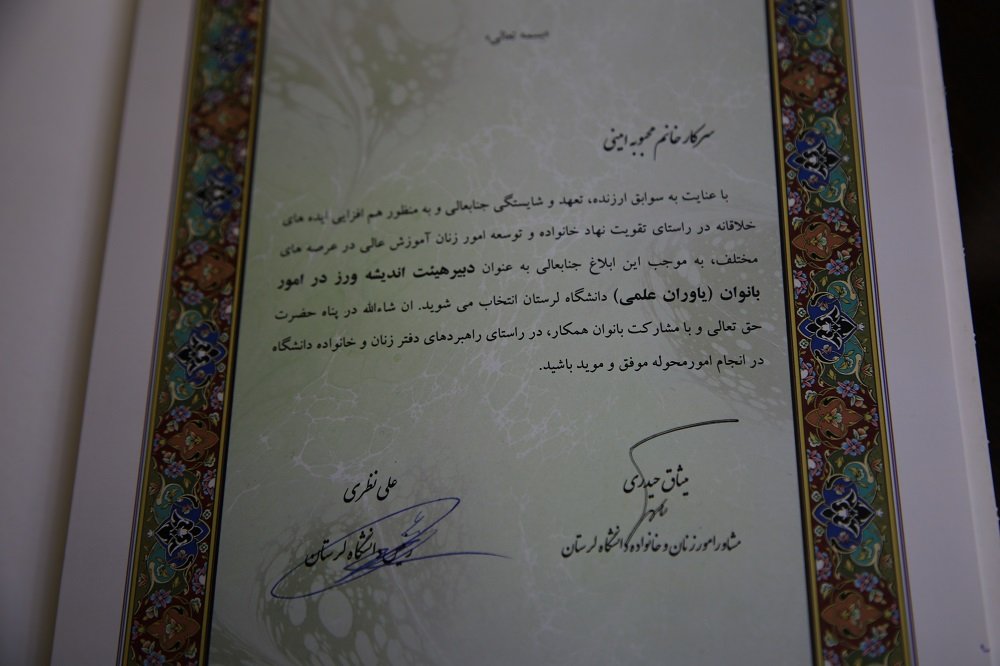 «بسمه تعالی»
سرکار خانم محبوبه امینی
با عنایت به سوابق ارزنده، تعهد و شایستگی جنابعالی و به منظور هم افزایی ایده های
خلاقانه در راستای تقویت نهاد خانواده و توسعه امور زنان آموزش عالی در عرصه های
مختلف، به موجب این ابلاغ جنابعالی به عنوان دبیرهیئت اندیشه ورز در امور
بانوان (یاوران علمی) دانشگاه لرستان انتخاب می شوید. ان شاءالله در پناه حضرت
حق تعالی و با مشارکت بانوان همکار، در راستای راهبردهای دفتر زنان و خانواده دانشگاه
در انجام امورمحوله موفق و موید باشید.
میثاق حیدری
مشاور امور زنان و خانواده دانشگاه لرستان
علی نظری
رئیس دانشگاه لرستان